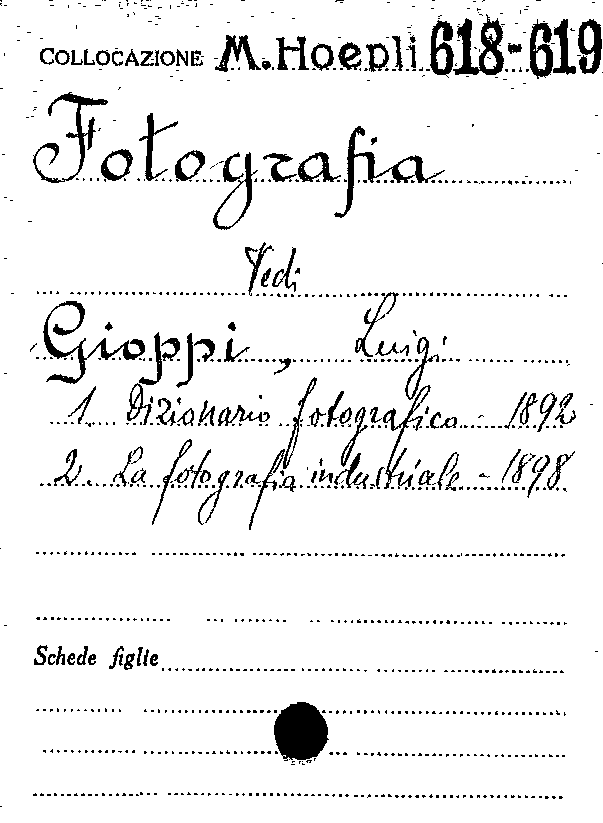 COLLOCAZIONE M. Hoepli 618-619
Fotografia
Vedi
Gioppi, Luigi
1. Dizionario fotografico - 1892
2. La fotografia industriale - 1898
Schede figlie